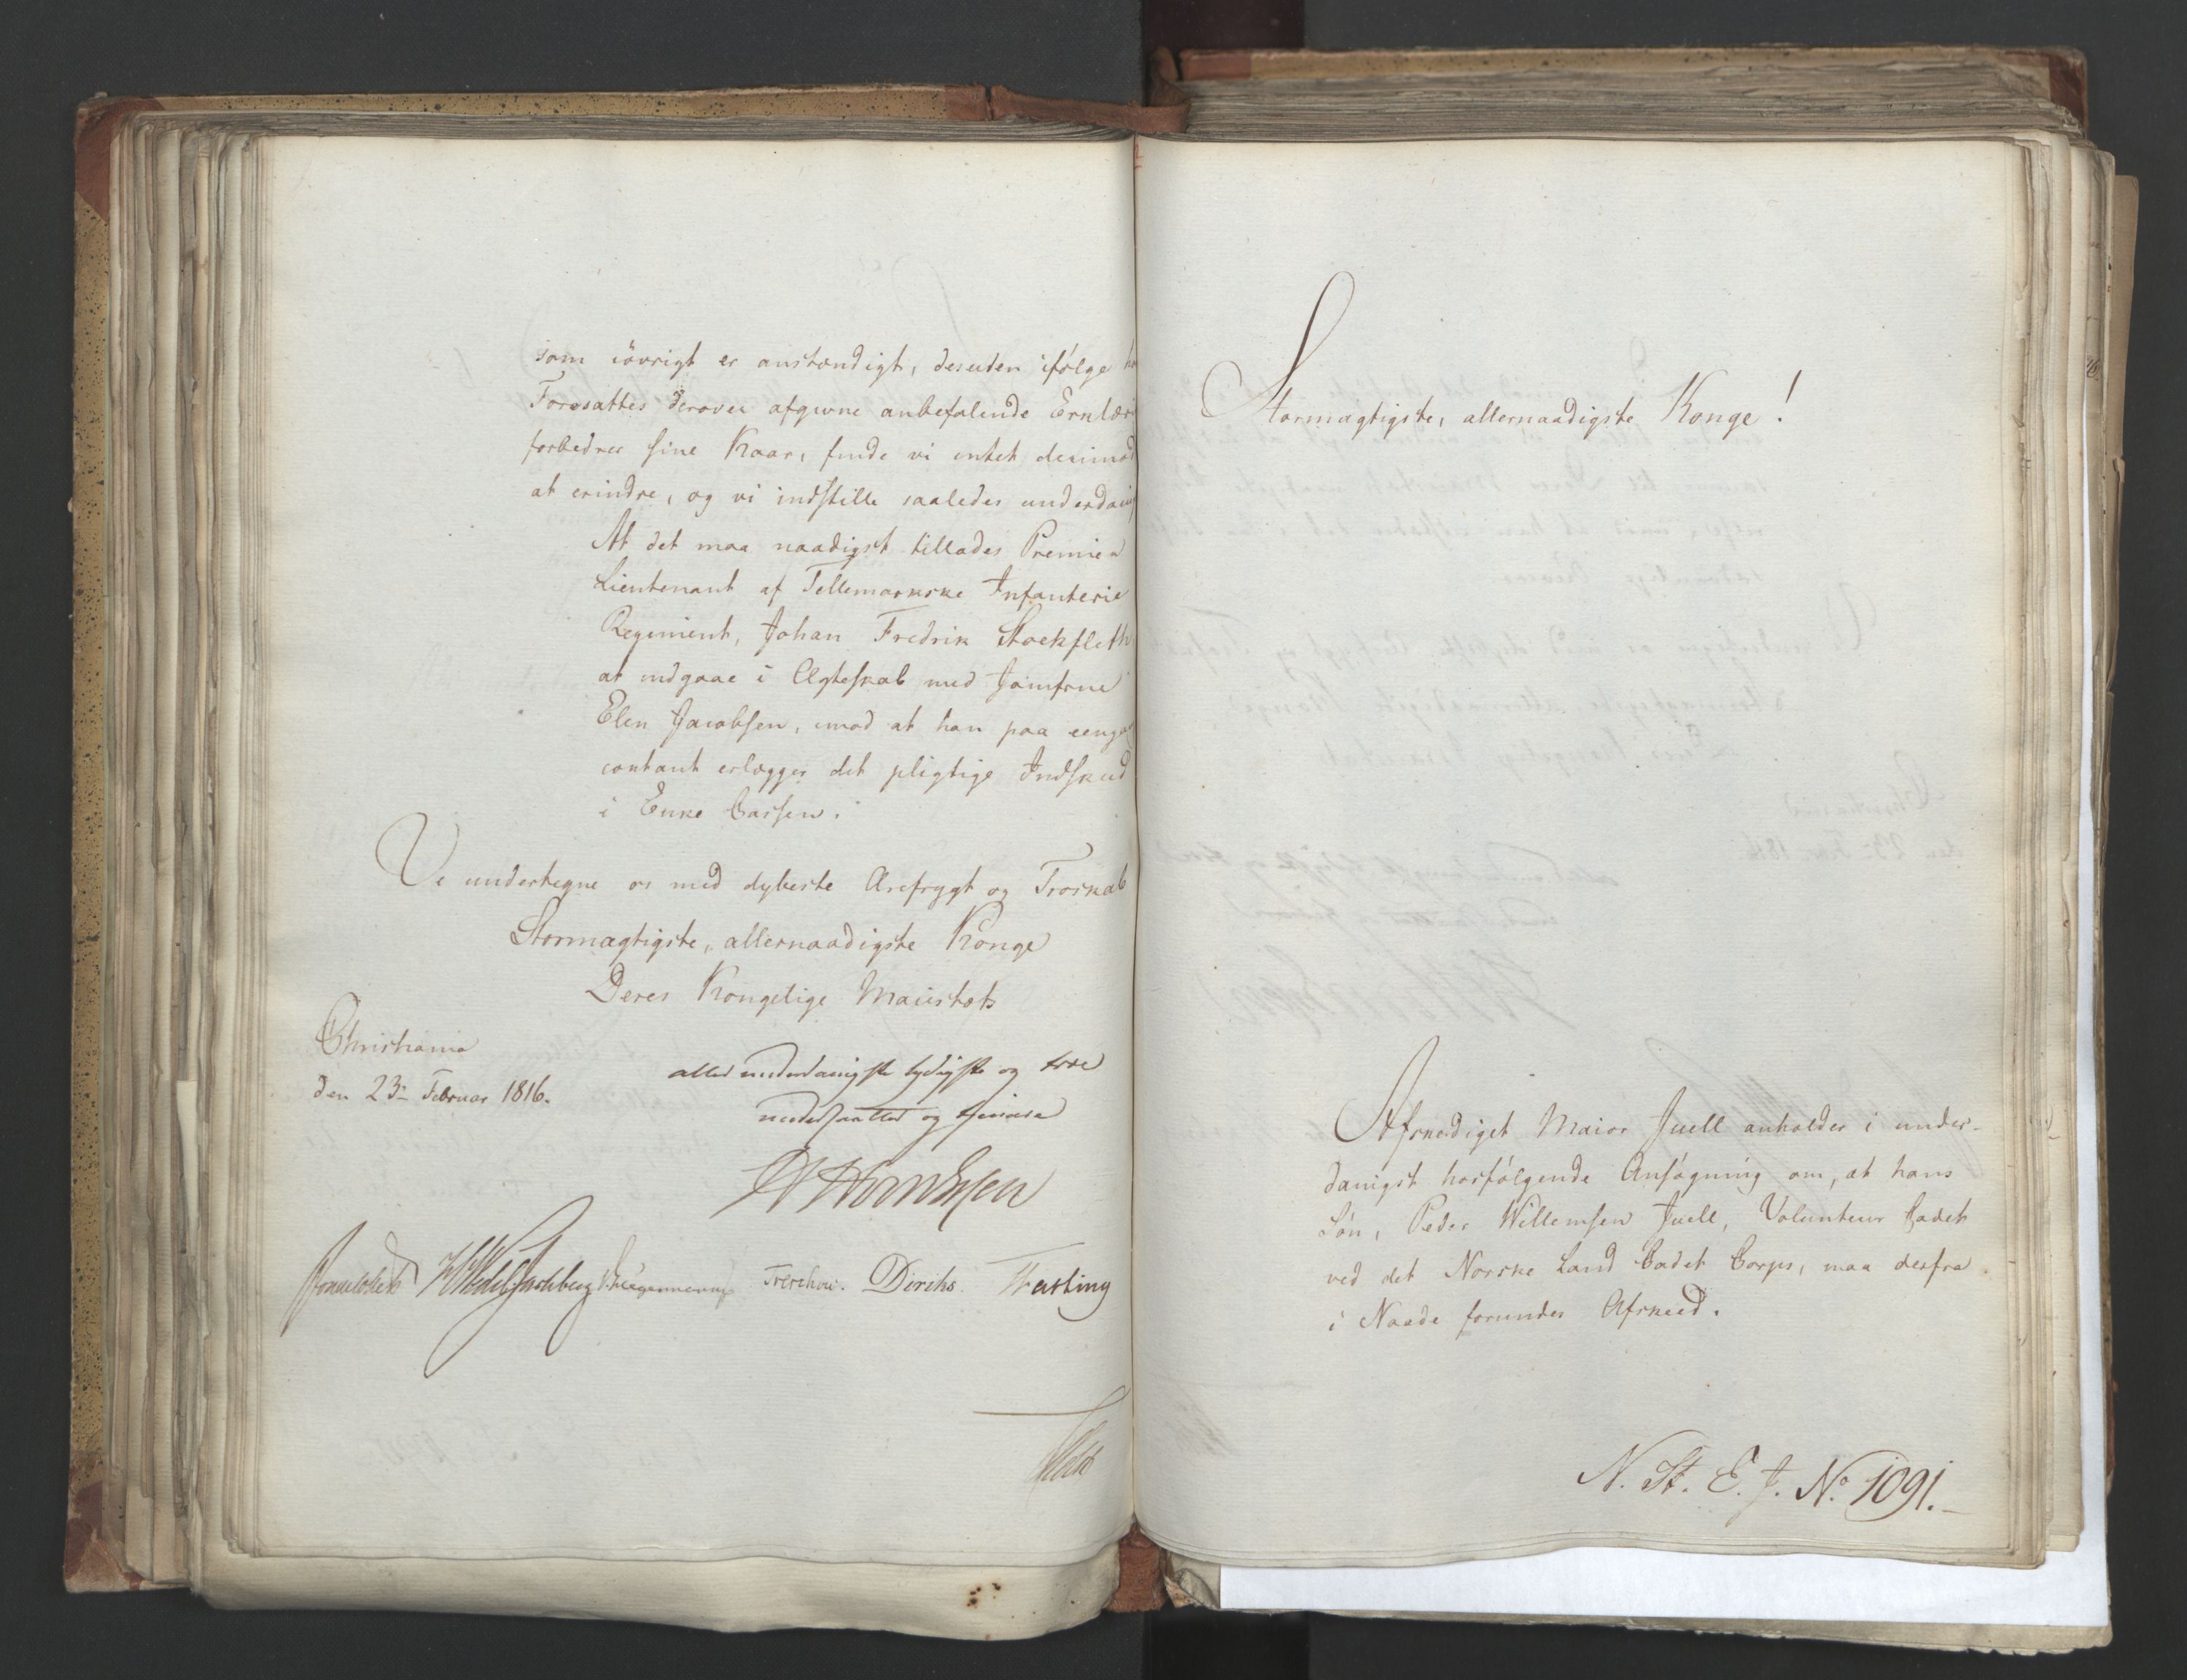 som iövrigt er anstændigt, desuden ifölge
Foresattes derover afgivne anbefalende Erklær
forbedrer sine Kaar, finde vi intet derimod
at erindre, og vi indstille saaledes underdanig
At det maa naadigst tillades Premier
Lieutenant af Tellemarkske Infanterie
Regiment, Johan Fredrik Stockfleth
at indgaae i Ægteskab med Jomfrue
Elen Jacobsen, imod at han paa eengang
contant erlægger det pligtige Indskud
i Enke Cassen.
Vi undertegne os med dybeste Ærefrygt og Troskab
Stormægtigste, allernaadigste Konge
Deres Kongelige Maiestæts
Christiania
den 23de Februar 1816.
allerunderdanigste lydigste og troe
undersaatter og tjenere
Wedel Jarlsberg Treschow. Diriks. Fasting
Holst
Stormægtigste, allernaadigste Konge!
Afskediget Maior Juell anholder i under-
danigst hosfölgende Ansögning om, at hans
Sön, Peder Willemsen Juell, Volunteur Cadet
ved det Norske Land Cadet Corps, maa derfra
i Naade forundes Afskeed.
N. St. E. J. No. 1091.-